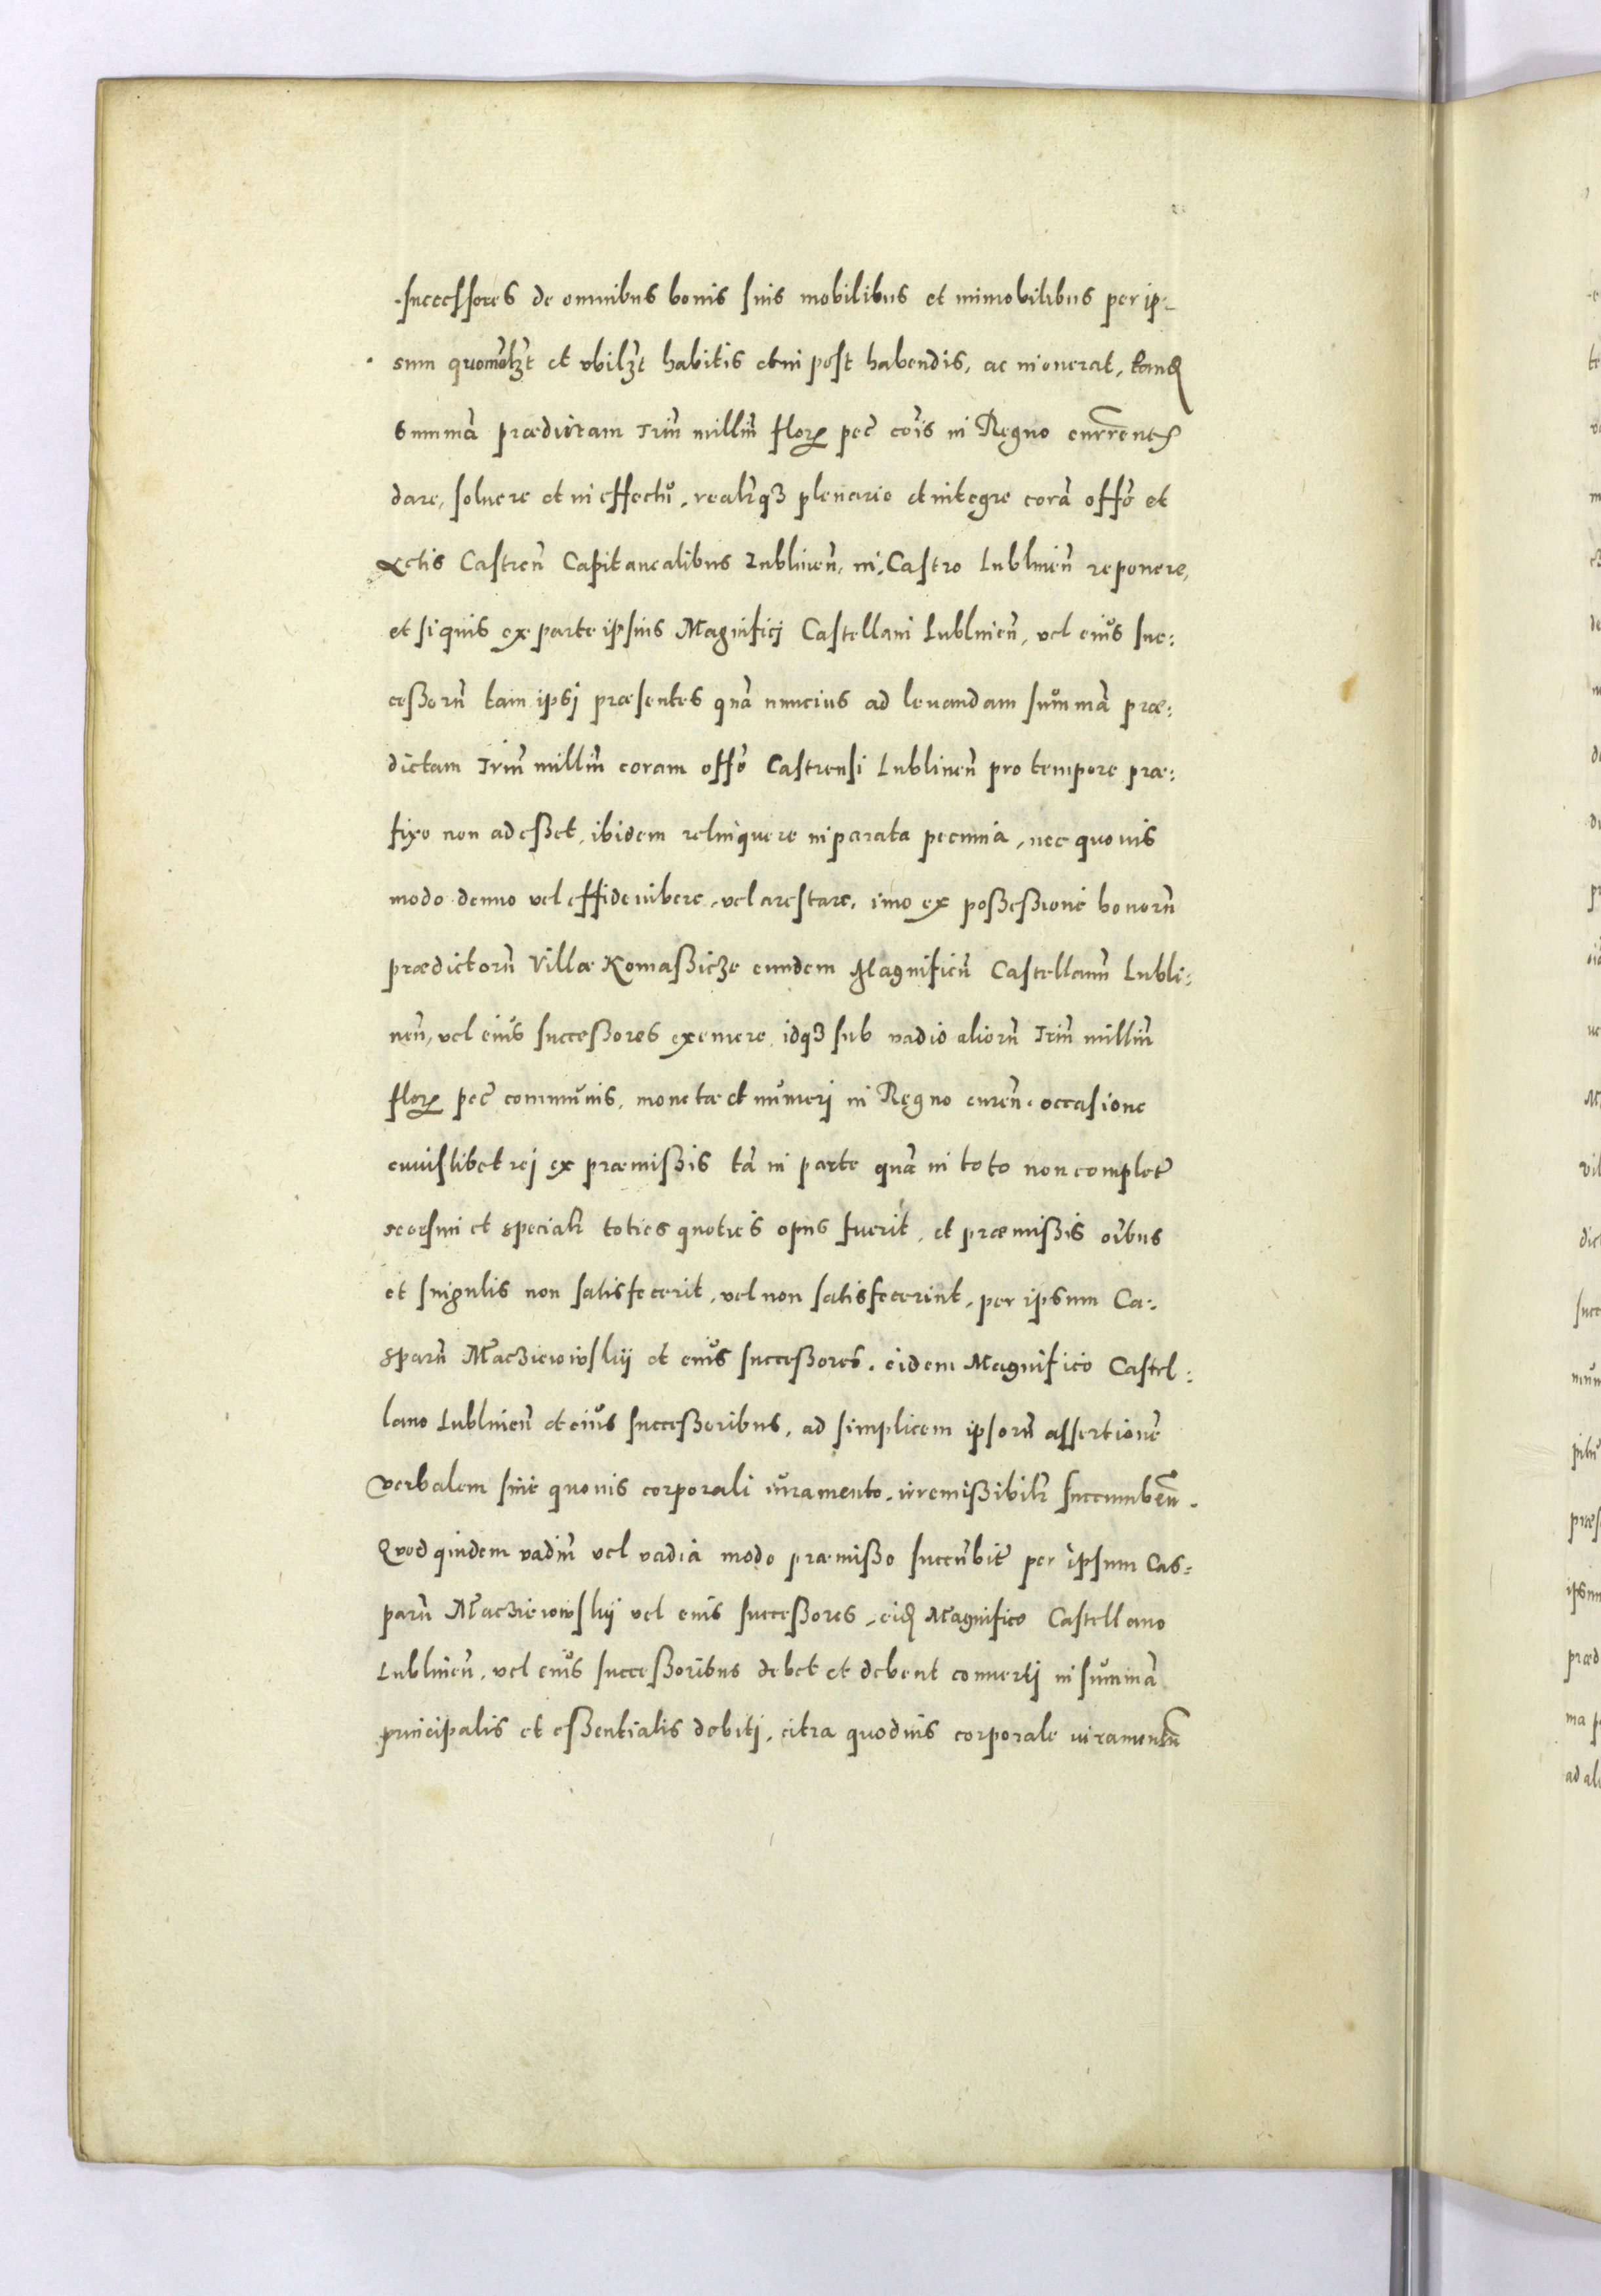 successores de omnibus bonis suis mobilibus et immobilibus per ip⸗
sum quomõlʒt et ubilʒt habitis et in post habendis, ac inonerat, tanꝗ
Summã prædictam Triũ milliũ floꝝ pec̃ cõis in Regno currentꝭ
dare, soluere et in effectu, realr̃qʒ plenarie et integre corã offõ et
Actis Castreñ Capitanealibus Lublineñ, in Castro Lublineñ reponere,
et si quis ex parte ipsius Magnificj Castellani Lublineñ, vel eius suc:
ceßorũ tam ipsj præsentes quã nuncius ad leuandam summã præ:
dictam Triũ milliũ coram offõ Castrensi Lublineñ pro tempore præ:
fixo non adeßet, ibidem relinquere in parata pecunia, nec quouis
modo denuo vel effide inibere, vel arestare, imo ex poßeßione bonorũ
prædictorũ Villæ Komaßicze eundem Magnificũ Castellanũ Lubli:
neñ, vel eius succeßores eximere, idqʒ sub vadio aliorũ Triũ milliũ
floꝝ pec̃ communis, monetæ et numeri in Regno cureñ. occasione
cuiuslibet rej ex præmißis tã in parte quã in toto non complet̃
seorsim et specialr̃ toties quoties opus fuerit, et præmißis oĩbus
et singulis non satisfecerit, vel non satisfecerint, per ipsum Ca:
sparũ Macziewowskij et eius succeßores. eidem Magnifico Castel:
lano Lublineñ et eius succeßoribus, ad simplicem ipsorũ assertionẽ
verbalem sine quouis corporali iuramento, irremißibilr̃ succumbeñ.
Quod quidem vadiũ vel vadia modo præmißo succũbit̃ per ipsum Cas:
parũ Macziewowskij vel eius succeßores, eiꝗ Magnifico Castellano
Lublineñ, vel eius succeßoribus debet et debent conuertj in summã
principalis et eßentialis debitj, citra quoduis corporale iuramentũ